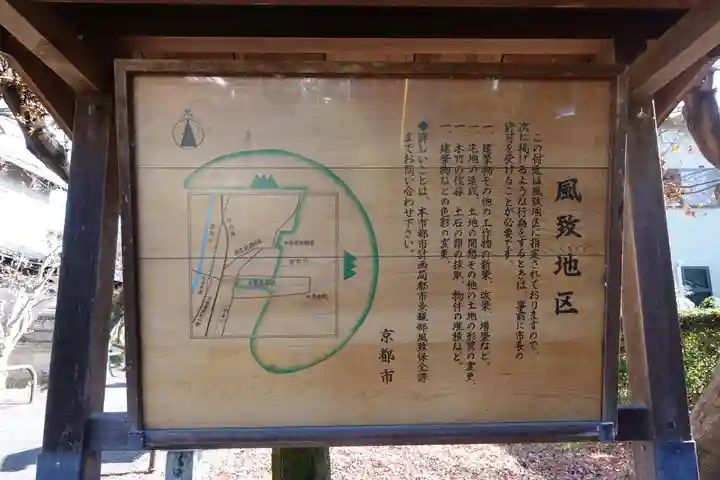 風致地区
この付近は風致地区に指定されておりますので、
次に掲げるような行為をするときは、事前に市長の
許可を受けることが必要です。
一、建築物その他の工作物の新築、改築、増築など。
一、宅地の造成、土地の開墾その他の土地の形質の変更。
一、木竹の伐採、土石の類の採取、物件の堆積など。
一、建築物などの色彩の変更。
◆詳しいことは、本市都市計画局都市景観部風致保全課
までお問い合わせ下さい。
京都市
北